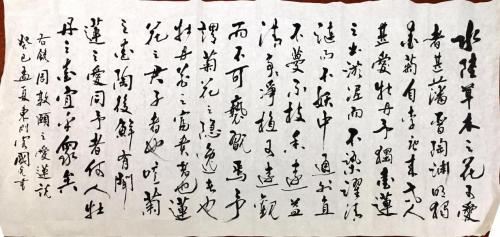 水陸草木之花可愛
者甚蕃晉陶渊明獨
愛菊自李唐來世人
甚愛牡丹予獨愛蓮
之出淤泥而不染濯清
漣而不妖中通外直
不蔓不枝香遠益
清亭淨植可遠觀
而不可褻翫焉予
謂菊花之隱逸者也
牡丹花之富貴者也蓮
花之君子者也噫菊
之愛陶後鮮有聞
蓮之愛同予者何人牡
丹之愛宜乎眾矣
右錄周敦頤之愛蓮說
癸巳孟夏東國書